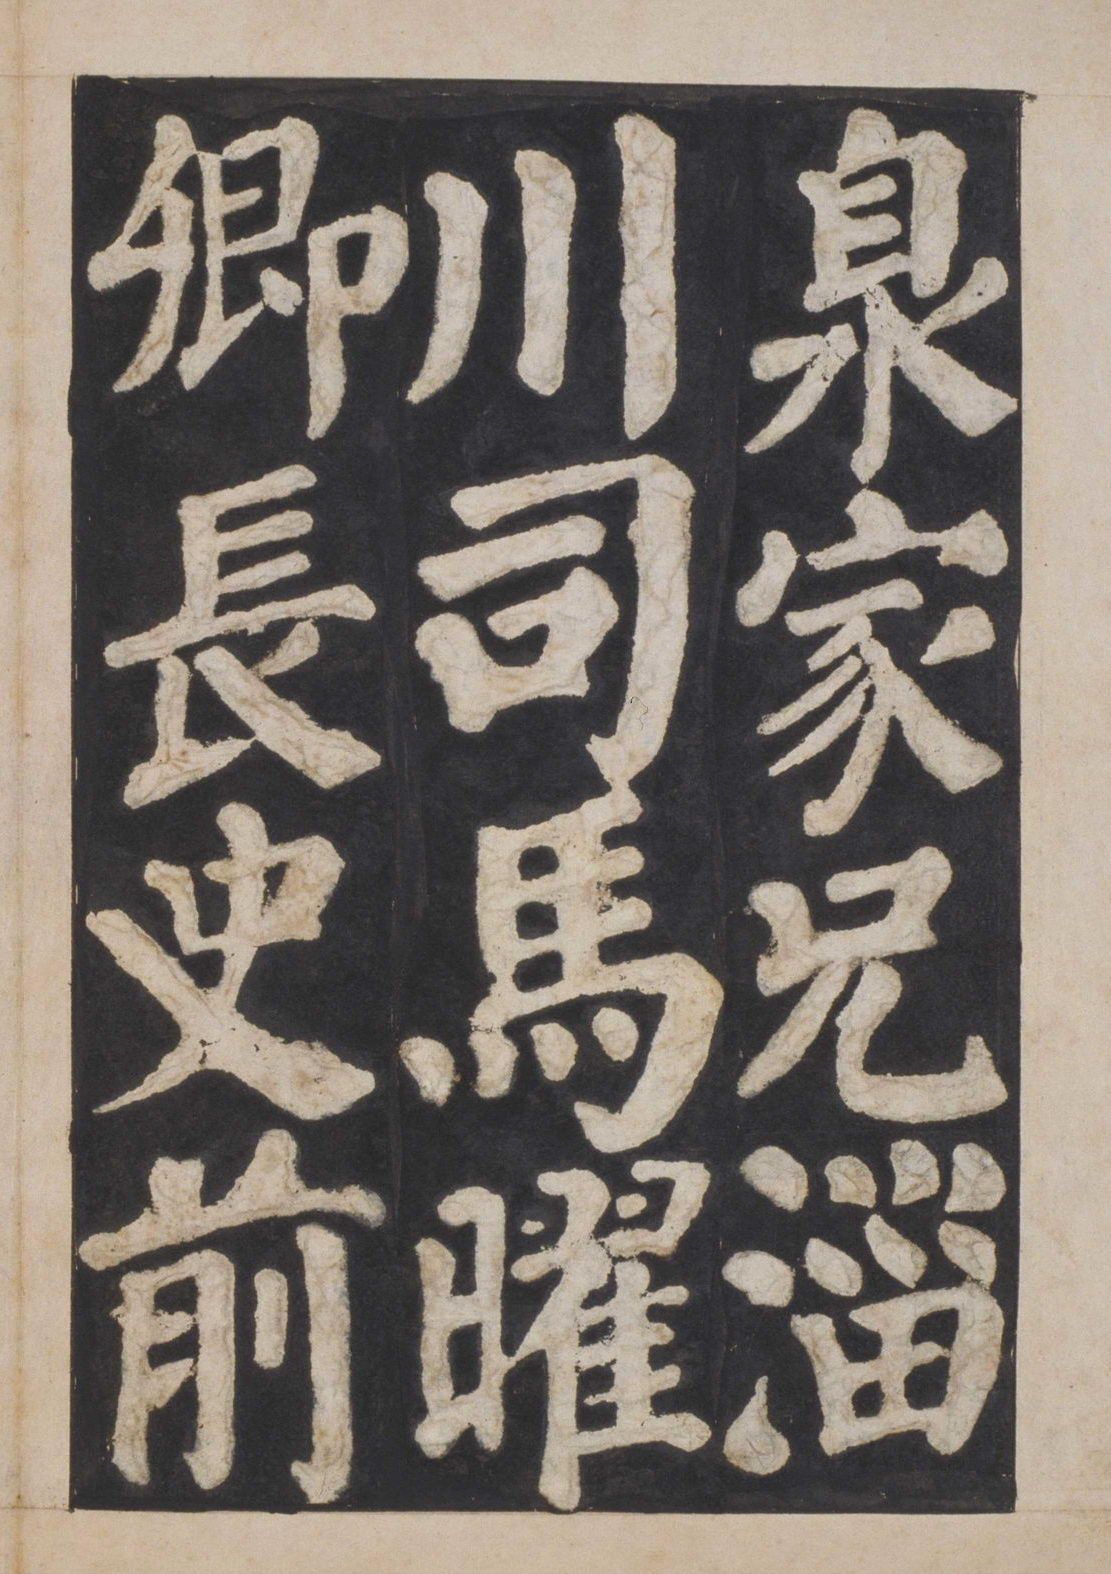 泉家兄淄
川司馬曜
卿長史前